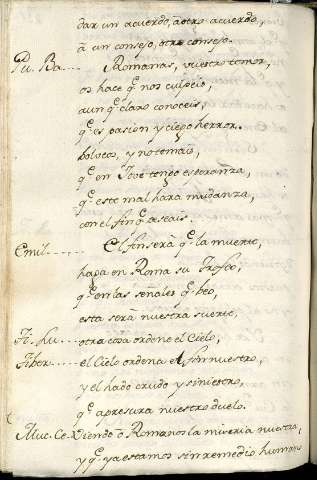 dar un acuerdo, â otro acuerdo,
à un consejo, otro consejo.
Pu. Ba Romanas, vuestro temor,
os hace q̃ nos culpeis,
aunq̃ claro conoceis,
q̃ es pasion y ciego herror.
bolveos, y no temais,
q̃ en Jove tengo esperanza,
q̃ este mal hara mudanza,
con el fin q̃
Emil El fin será q̃ la muerte,
haga en Roma su Trofeo,
q̃ en las señales q̃ beo,
esta será nuestra suerte,
Ti. Lu. otra cosa ordene el Cielo,
Tiber el Cielo ordena el fin nuestro,
y el hado crudo y siniestro,
q̃ apresura nuestro duelo.
Muc. Ce. Viendo ô Romanos la miseria nuestra,
y q̃ ya estamos sin remedio humano